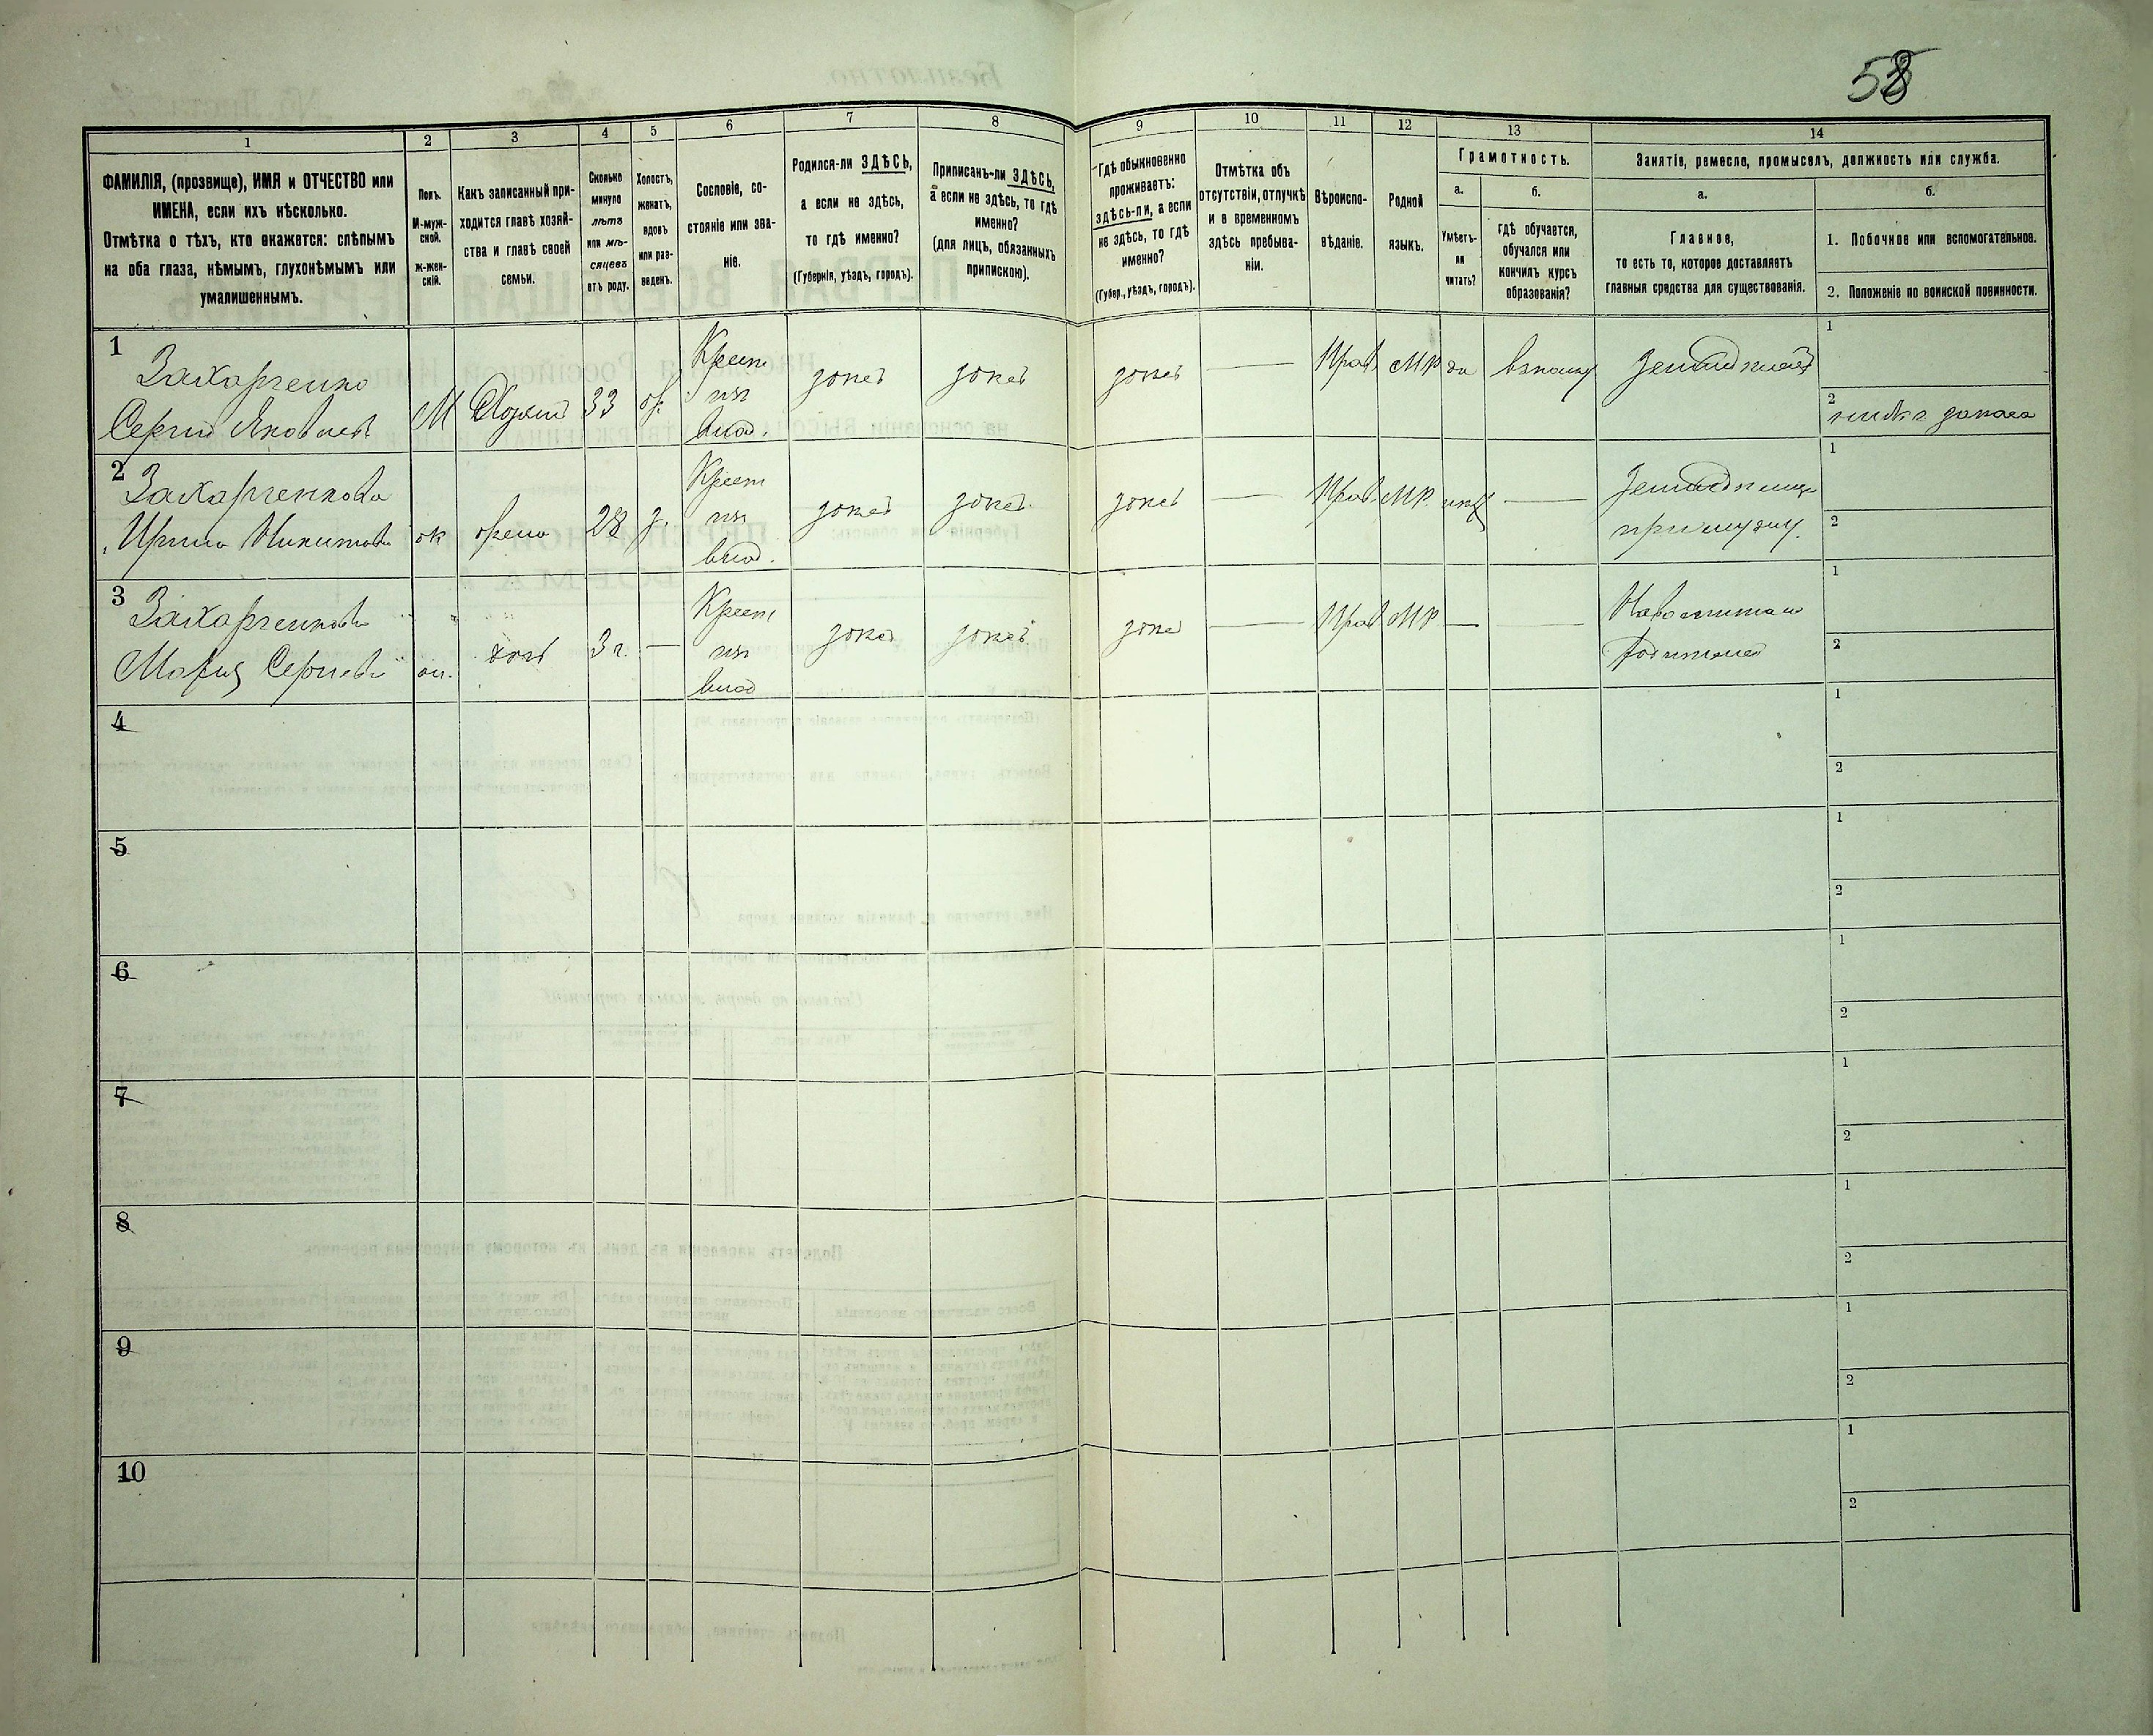 58
1
2
3
4
5
6
7
8
9
10
11
12
13
14
ФАМИЛІЯ, (прозвище), ИМЯ и ОТЧЕСТВО или
ИМЕНА, если ихъ нѣсколько.
Отмѣтка о тѣхъ, кто окажется: слѣпымъ
на оба глаза, нѣмымъ, глухонѣмымъ или
умалишеннымъ.
Полъ.
М-муж-
ской.
Ж-жен-
скій.
Какъ записанный при-
ходится главѣ хозяй-
ства и главѣ своей
семьи.
Сколько
минуло
лѣтъ
или мѣ-
сяцевъ
отъ роду.
Холостъ,
женатъ,
вдовъ
или раз-
веденъ.
Сословіе, со-
стояніе или зва-
ніе.
Родился-ли ЗДѢСЬ,
а если не здѣсь,
то гдѣ именно?
(Губернія, уѣздъ, городъ).
Приписанъ-ли ЗДѢСЬ,
а если не здѣсь, то гдѣ
именно?
(для лицъ, обязанныхъ
припискою).
Гдѣ обыкновенно
проживаетъ:
здѣсь-ли, а если
не здѣсь, то гдѣ
именно?
(Губер., уѣздъ, городъ).
Отмѣтка объ
отсутствіи, отлучкѣ
и о временномъ
здѣсь пребыва-
ніи.
Вѣроиспо-
вѣданіе.
Родной
языкъ.
Грамотность.
а.
Умѣетъ-
ли
читать?
б.
гдѣ обучается,
обучался или
кончилъ курсъ
образованія?
Занятіе, ремесло, промыселъ, должность или служба.
а.
Главное,
то есть то, которое доставляетъ
главныя средства для существованія.
б.
1. Побочное или вспомогательное.
2. Положеніе по воинской повинности.
1
Захарченко
Сергій Яковлевъ
М
33
Крест
изъ
влад.
здѣсь
здѣсь
здѣсь
Прав
МР
да
1
2
2
Захарченкова
Ирина Никитова
ж
жена
28
з.
Крест
изъ
влад.
здѣсь
здѣсь
здѣсь
Прав.
МР.
при мужу.
1
2
3
Захарченкова
Марія Сергіева
ж.
дочь
3 г.
Крест
изъ
влад
здѣсь
здѣсь
здѣсь
Прав
МР
1
2
4
1
2
5
1
2
6
1
2
7
1
2
8
1
2
9
1
2
10
1
2